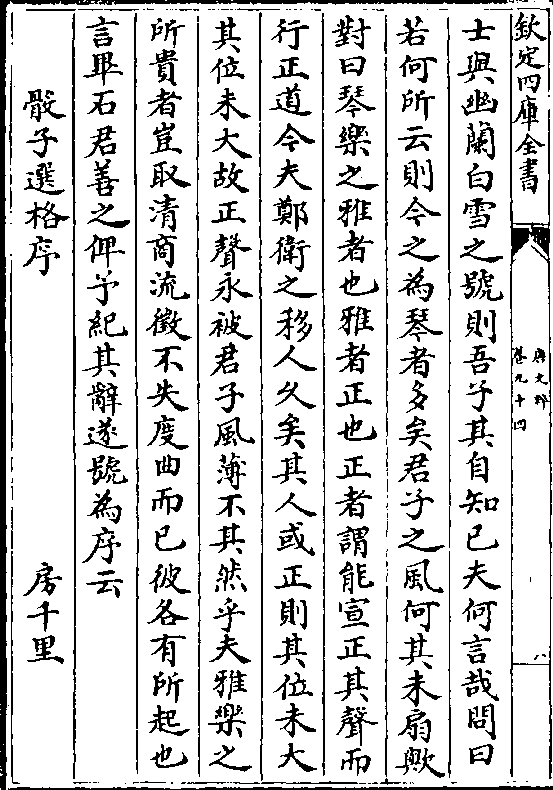 欽定四庫全書
唐文粹
卷九十四
八
士與幽蘭白雪之號則吾子其自知已夫何言哉問曰
若何所云則今之為琴者多矣君子之風何其未扇歟
對曰琴樂之雅者也雅者正也正者謂能宣正其聲而
行正道今夫鄭衛之移人久矣其人或正則其位未大
其位未大故正聲永被君子風薄不其然乎夫雅樂之
所貴者豈取清商流徵不失度曲而已彼各有所起也
言畢石君善之俾予紀其辭遂號為序云
骰子選格序 房千里